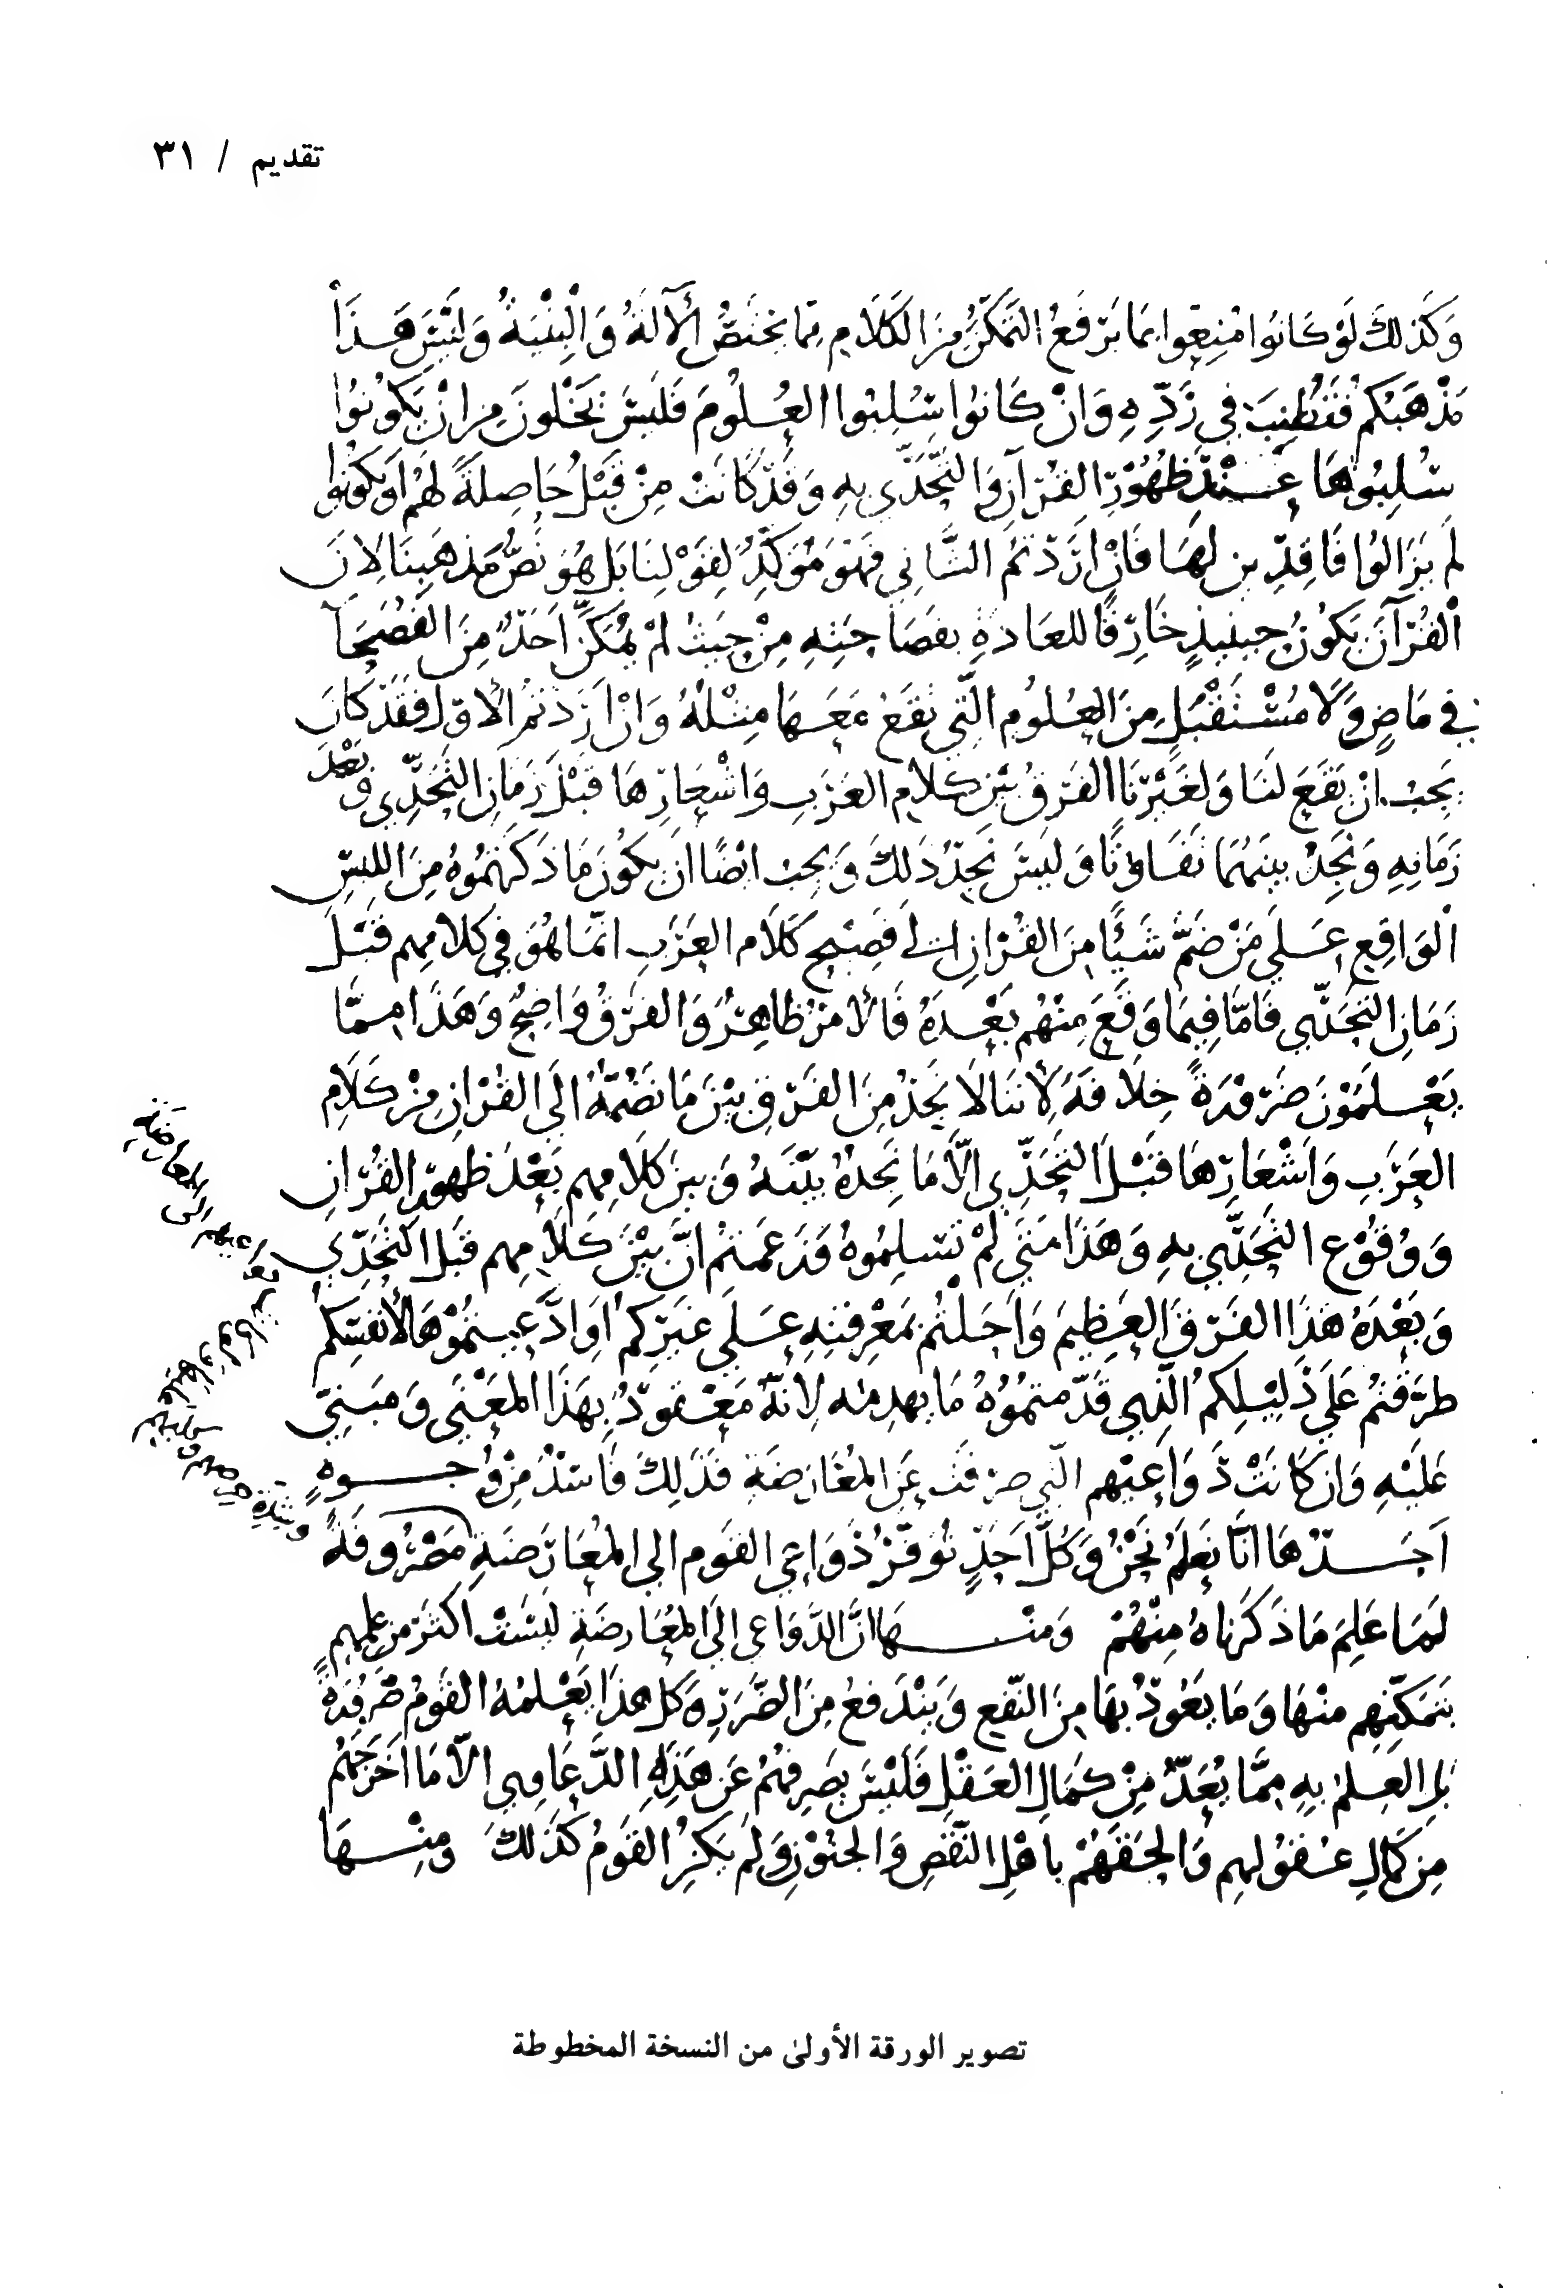 تقديم / ٣١
وكذلك لو كانوا منعوا بما يرفع التمكن من الكلام مما يختص الآلة والبنية وليس هذا
مذهبكم فنطنب في رده وان كانوا سلبوا العلوم فليس يخلون من ان يكونوا
سلبوها عند ظهور القرآن والتحدي به وقد كانت من قبل حاصلة لهم او يكونوا
لم يزالوا فاقدين لها فان اردتم الثاني فهو مؤكد لقولنا بل هو نص مذهبنا لان
القرآن يكون حينيذ خارقا للعادة بفصاحته من حيث لم يمكن احد من الفصحا
في ماض ولا مستقبل من العلوم التي يقع معها مثله وان اردتم الاول فقد كان
يجب ان يقع لنا ولغيرنا الفرق بين كلام العرب واشعارها قبل زمان التحدي وبعد
زمانه ونجد بينهما تفاوتا وليس نجد ذلك ويجب ايضا ان يكون ما ذكرتموه من اللبس
الواقع على من ضم شيئا من القران الى فصيح كلام العرب انما هو في كلامهم قبل
زمان التحدي فاما فيما وقع منهم بعده فالامر ظاهر والفرق واضح وهذا مما
يعلمون ضرورة خلافه لاننا لا نجد من الفرق بين ما نضمه الى القران من كلام
العرب واشعارها قبل التحدي الا ما نجده بينه وبين كلامهم بعد ظهور القران
ووقوع التحدي به وهذا متى لم تسلموه وزعمتم ان بين كلامهم قبل التحدي
وبعده هذا الفرق العظيم واحلتم بمعرفته على غيركم او ادعيتموها لانفسكم
طرقتم على دليلكم الذي قدمتموه ما يهدمه لانه معقود بهذا المعنى ومبني
عليه وان كانت دواعيهم التي صرفت عن المعارضة فذلك فاسد من وجوه
احدها انا نعلم نحن وكل احد توفر دواعي القوم الى المعارضة
لما علم ما ذكرناه منهم ومنها ان الدواعي الى المعارضة ليست اكثر من علمهم
بتمكنهم منها وما يعود بها من النفع ويندفع من الضرر وكل هذا يعلمه القوم ضرورة
بل العلم به مما يعد من كمال العقل فليس يصرفهم عن هذه الدعاوي الا ما اخرجهم
من كمال عقولهم والحقهم باهل النقص والجنون ولم يكن القوم كذلك ومنها
تصوير الورقة الأولىٰ من النسخة المخطوطة